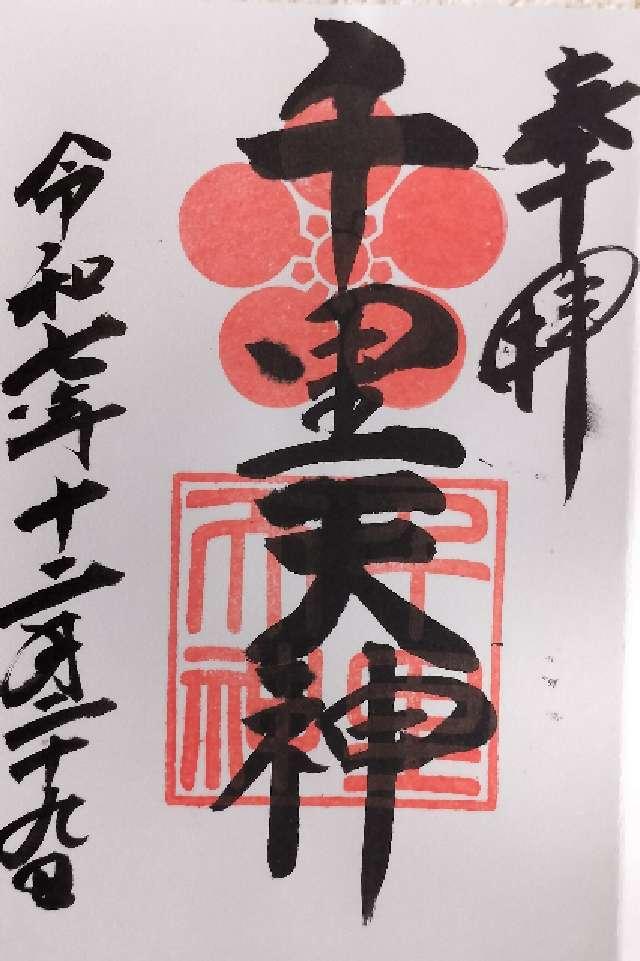 奉拝
千里天神
千里
天神
令和七年十二月二十九日